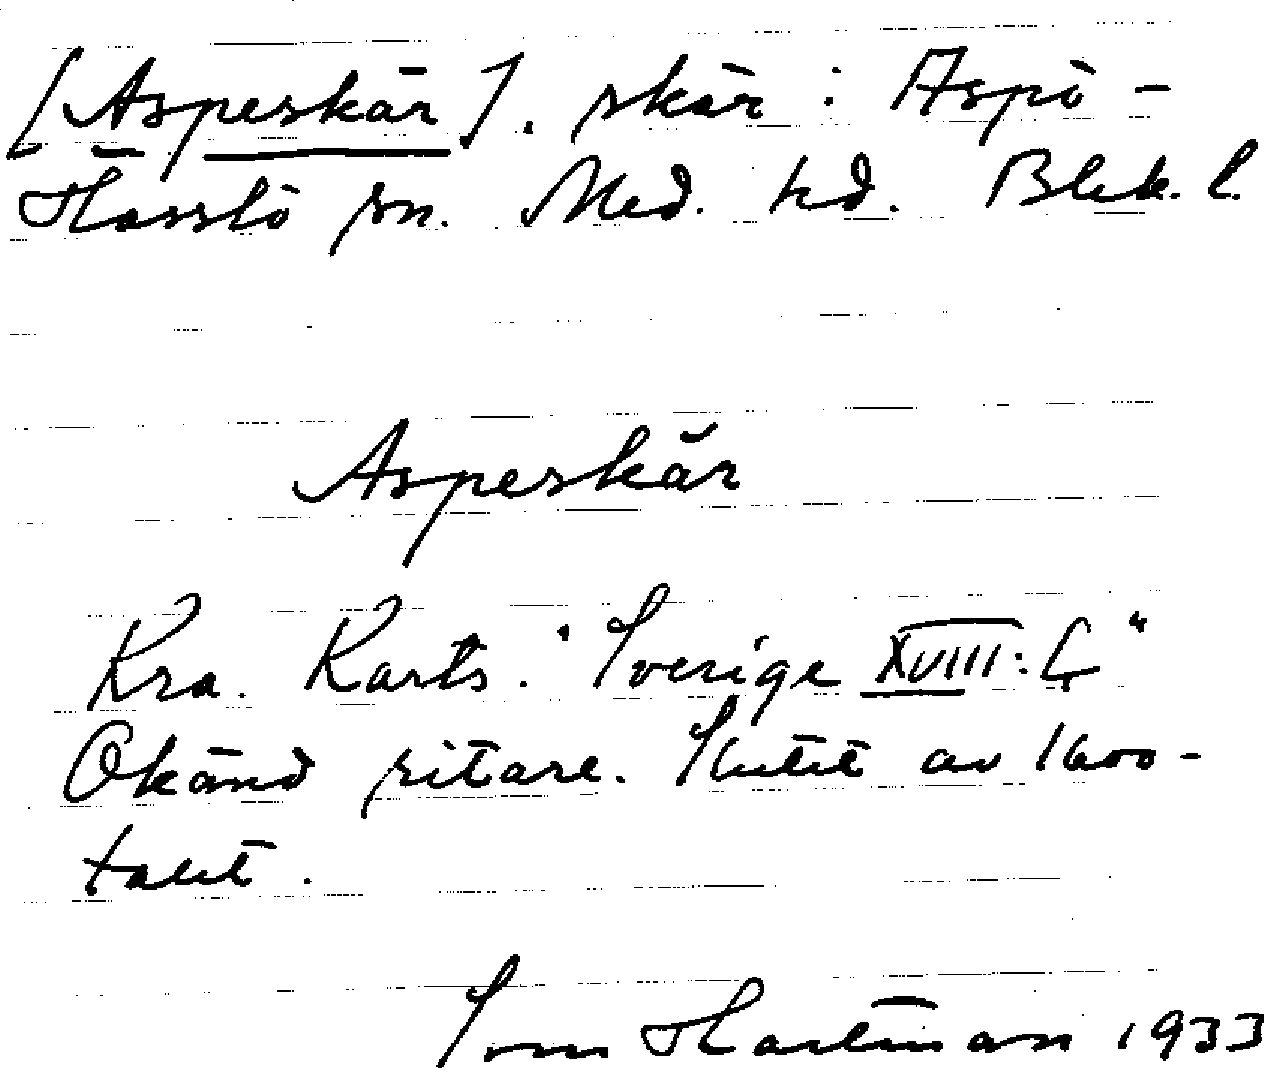 [Aspeskär]. skär : Aspö-
Hasslö sn. Med. hd. Blek. l.
Aspeskär
Kra. Karts. "Sverige XVIII:
Okänd ritare. Slutet av 1600-
talet.
Sven Hartman 1933